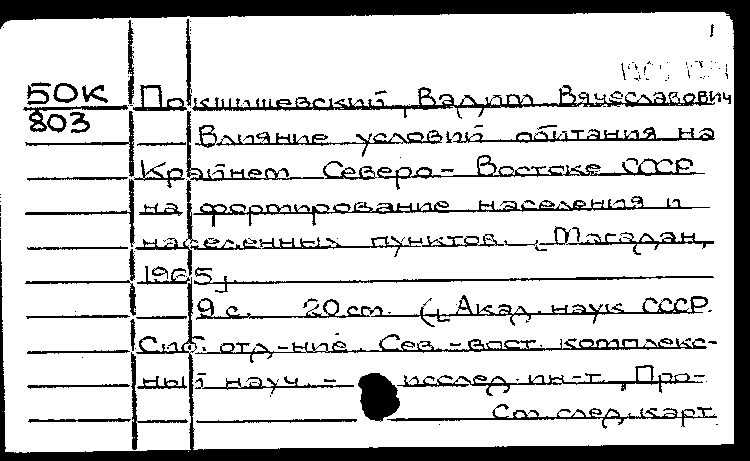 1
50К Покшишевский, Вадим Вячеславович
803 Влияние условий обитания на
Крайнем Северо-Востоке СССР
на формирование населения и
населенных пунктов. [Магадан,
1965].
9 с. 20 см. ([Акад. наук СССР.
Сиб. отд-ние. Сев.-вост. комплекс-
ный науч.- исслед. ин-т. Про-
См. след. карт.